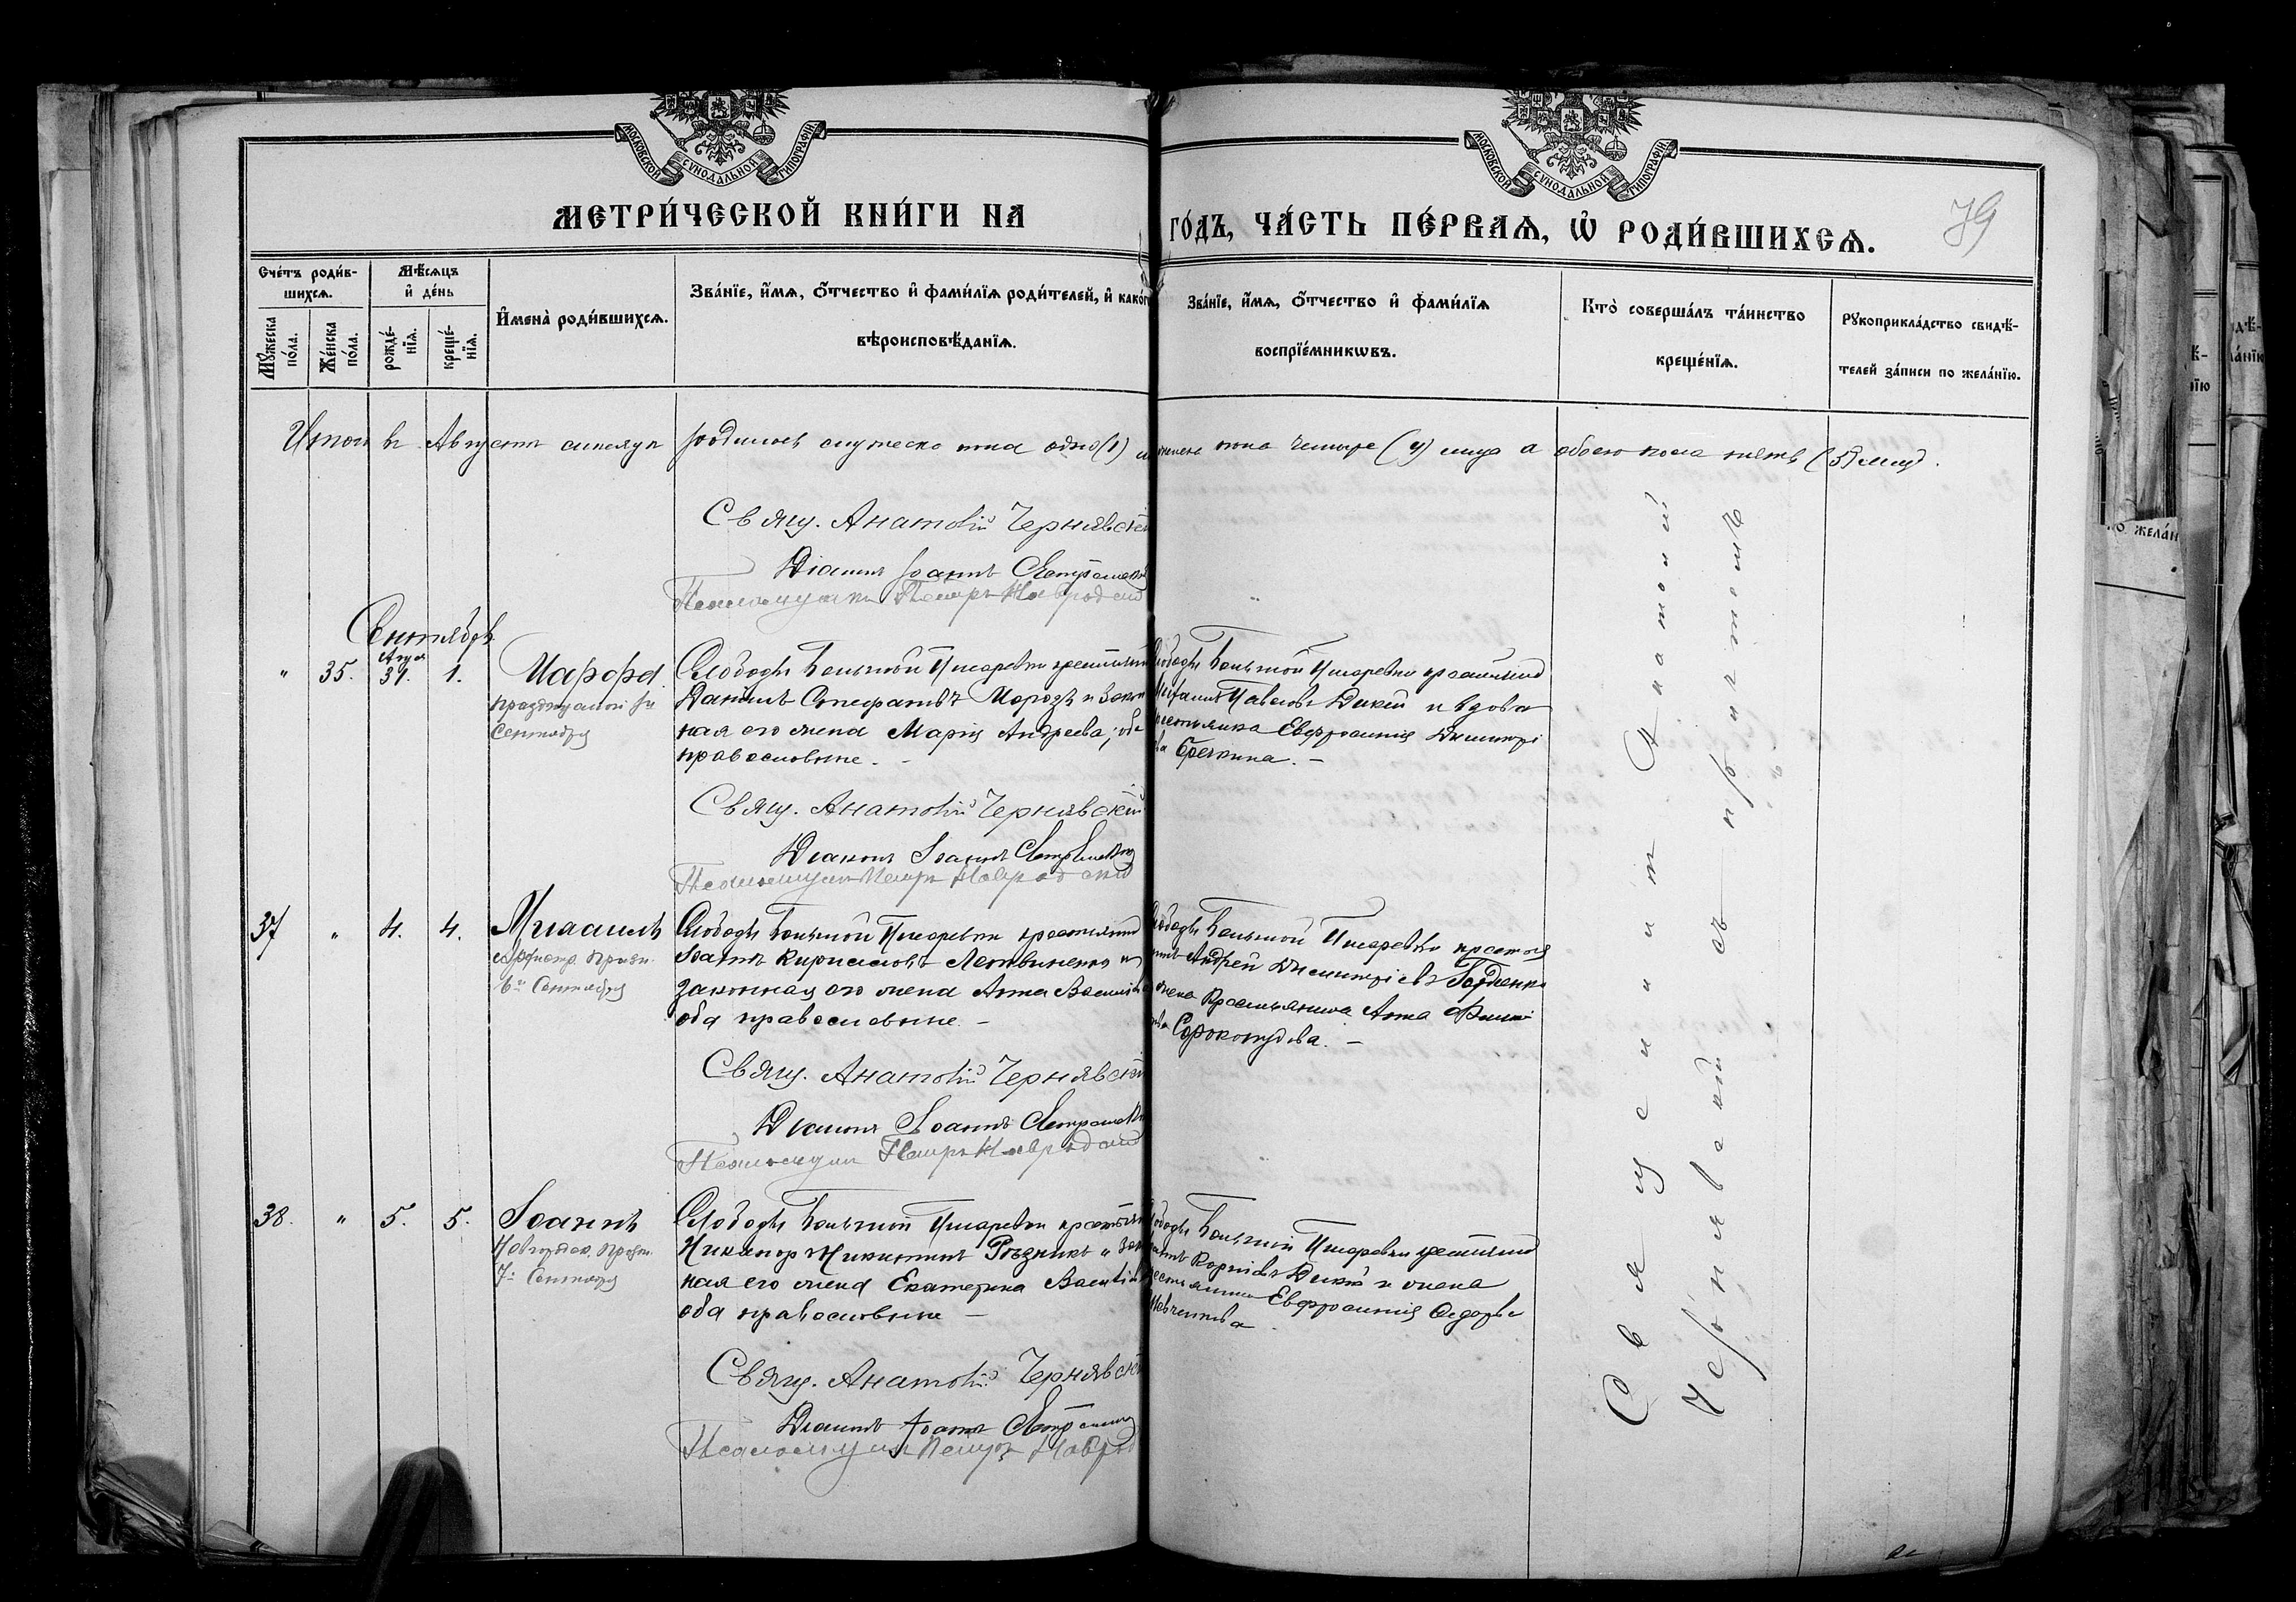 МОСКОВСКОЙ СѴНОДАЛЬНОЙ ТИПОГРАФІИ
МОСКОВСКОЙ СѴНОДАЛЬНОЙ ТИПОГРАФІИ
МЕТРИ́ЧЕСКОЙ КНИ́ГИ НА
ГО́ДЪ, ЧА́СТЬ ПЕ́РВАѦ, Ѡ҆ РОДИ́ВШИХСѦ.
79
Сче́тъ роди́в-
шихсѧ.
Мꙋ́жеска
по́ла.
Же́нска
по́ла.
Мѣ́сѧцъ
и҆ де́нь
рожде́-
нїѧ.
креще́-
нїѧ.
И҆мена̀ роди́вшихсѧ.
Зва́нїе, и҆́мѧ, ѻ҆́тчество и҆ фами́лїѧ роди́телей, и҆ како́гѡ
вѣроисповѣ́данїѧ.
Зва́нїе, и҆́мѧ, ѻ҆́тчество и҆ фами́лїѧ
воспрїе́мникѡвъ.
Кто̀ соверша́лъ та́инство
креще́нїѧ.
Рꙋкоприкла́дство свидѣ́-
телей за́писи по жела́нїю.
Итого въ Августѣ мѣсяцѣ родилось мужеска пола одно (1) и женска пола четыре (4) лица а обоего пола пять (5) лицъ.
Свящ. Анатолій Чернявскій
Діаконъ Іоаннъ
Псаломщикъ Петръ Навродскій
Сентябрь
" 35. Авгус 31. 1. Марфа
празднуемой 1го
Сентября
Слободы Большой Писаревки крестьянинъ
Даніилъ Стефановъ Морозъ и закон
ная его жена Марія Андреева; оба
православные. –
Слободы Большой Писаревки крестьянинъ
Михаилъ Павловъ Дикій и вдова
крестьянка Евфросинія Димитрі
ева
Свящ. Анатолій Чернявскій
Діаконъ Іоаннъ
Псаломщикъ Петръ Навродскій
37 " 4. 4. Михаилъ
Архистр. праздн.
6го Сентября
Слободы Большой Писаревки крестьянинъ
Іоаннъ Кирилловъ Литвиненко и
законная его жена Анна Василіева
оба православные. –
Слободы Большой Писаревки крестья
нинъ Андрей Димитріевъ Гордіенко
и жена крестьянина Анна
Сорокопудова. –
Свящ. Анатолій Чернявскій
Діаконъ Іоаннъ
Псаломщикъ Петръ Навродскій
38. " 5. 5. Іоаннъ
Новгородск. праздн.
7го Сентября
Слободы Большой Писаревки крестьянинъ
Никаноръ Никитинъ Рѣзникъ и закон
ная его жена Екатерина Василіева
оба православные –
Слободы Большой Писаревки крестьянинъ
Корніевъ Дикій и жена
крестьянина Евфросинія Ѳедорова
Шевченкова
Свящ. Анатолій Чернявскій
Діаконъ Іоаннъ
Псаломщикъ Петръ Навродскій
Священникъ Анатолій
Чернявскій съ причтомъ